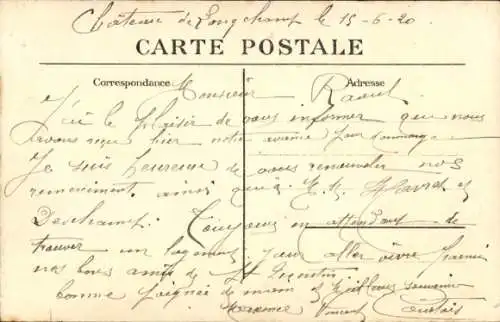 Château de Longchamp le 15-6-20
CARTE POSTALE
Correspondance
Adresse
Monsieur Raoul
J'ai le plaisir de vous informer que nous
avons reçu hier notre avance pour dommage.
Je suis heureux de vous renouveler nos
remerciment ainsi qu'à M. M. et
Deschamp. Toujours en attendant de
trouver un logement pour aller vivre parmi
nos bons amis de St Quentin
bonne poignée de main et meilleur souvenir
Vincent